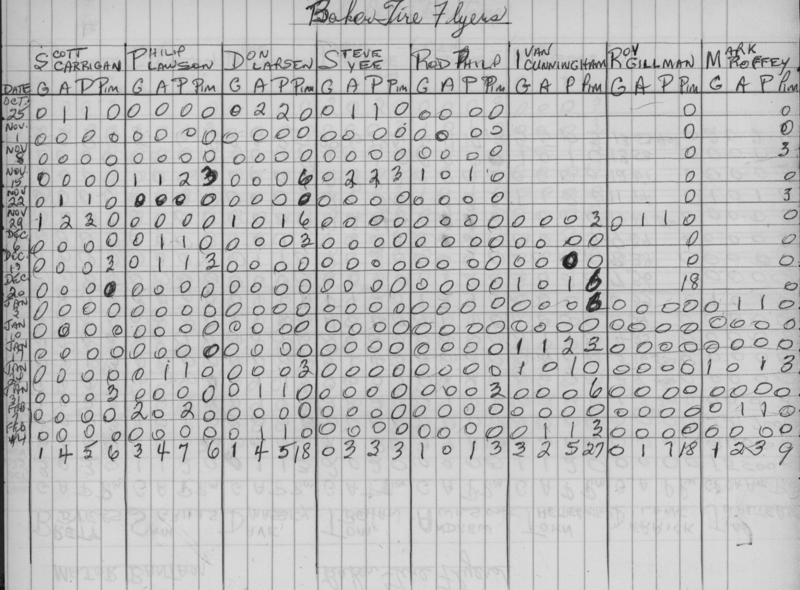 Baker Tire Flyers
SCOTT CARRIGAN PHILIP LAWSON DON LARSEN STEVE YEE ROD PHILP IVAN CUNNINGHAM ROY GILLMAN MARK ROFFEY
DATE G A P Pim G A P Pim G A P Pim G A P Pim G A P Pim G A P Pim G A P Pim G A P Pim
OCT. 25 0 1 1 0 0 0 0 0 0 2 2 0 0 1 1 0 0 0 0 0 0 0
NOV. 1 0 0 0 0 0 0 0 0 0 0 0 0 0 0 0 0 0 0 0 0 0 0
NOV 8 0 0 0 0 0 0 0 0 0 0 0 0 0 0 0 0 0 0 0 0 0 3
NOV 15 0 0 0 0 1 1 2 3 0 0 0 6 0 2 2 3 1 0 1 0 0 0
NOV 22 0 1 1 0 0 0 0 0 0 0 0 0 0 0 0 0 0 0 0 0 0 3
NOV 29 1 2 3 0 0 0 0 0 1 0 1 6 0 0 0 0 0 0 0 0 0 0 0 3 0 1 1 0 0
DEC 6 0 0 0 0 0 1 1 0 0 0 0 3 0 0 0 0 0 0 0 0 0 0 0 0 0 0
DEC 13 0 0 0 3 0 1 1 3 0 0 0 0 0 0 0 0 0 0 0 0 0 0 0 0 0 0
DEC 20 0 0 0 0 0 0 0 0 0 0 0 0 0 0 0 0 0 0 0 0 1 0 1 6 18 0
JAN 3 0 0 0 0 0 0 0 0 0 0 0 0 0 0 0 0 0 0 0 0 0 0 0 6 0 0 0 0 0 1 1 0
JAN 10 0 0 0 0 0 0 0 0 0 0 0 0 0 0 0 0 0 0 0 0 0 0 0 0 0 0 0 0 0 0 0 0
JAN 0 0 0 0 0 0 0 0 0 0 0 0 0 0 0 0 0 0 0 0 1 1 2 3 0 0 0 0 0 0 0 0
JAN 0 0 0 0 0 1 1 0 0 0 0 3 0 0 0 0 0 0 0 0 1 0 1 0 0 0 0 0 1 0 1 3
JAN 0 0 0 3 0 0 0 0 0 1 1 0 0 0 0 0 0 0 0 3 0 0 0 6 0 0 0 0 0 0 0 0
FEB 0 0 0 0 2 0 2 0 0 0 0 0 0 0 0 0 0 0 0 0 0 0 0 0 0 0 0 0 0 1 1 0
FEB 14 0 0 0 0 0 0 0 0 0 1 1 0 0 0 0 0 0 0 0 0 0 1 1 3 0 0 0 0 0 0 0 0
1 4 5 6 3 4 7 6 1 4 5 18 0 3 3 3 1 0 1 3 3 2 5 27 0 1 1 18 1 2 3 9